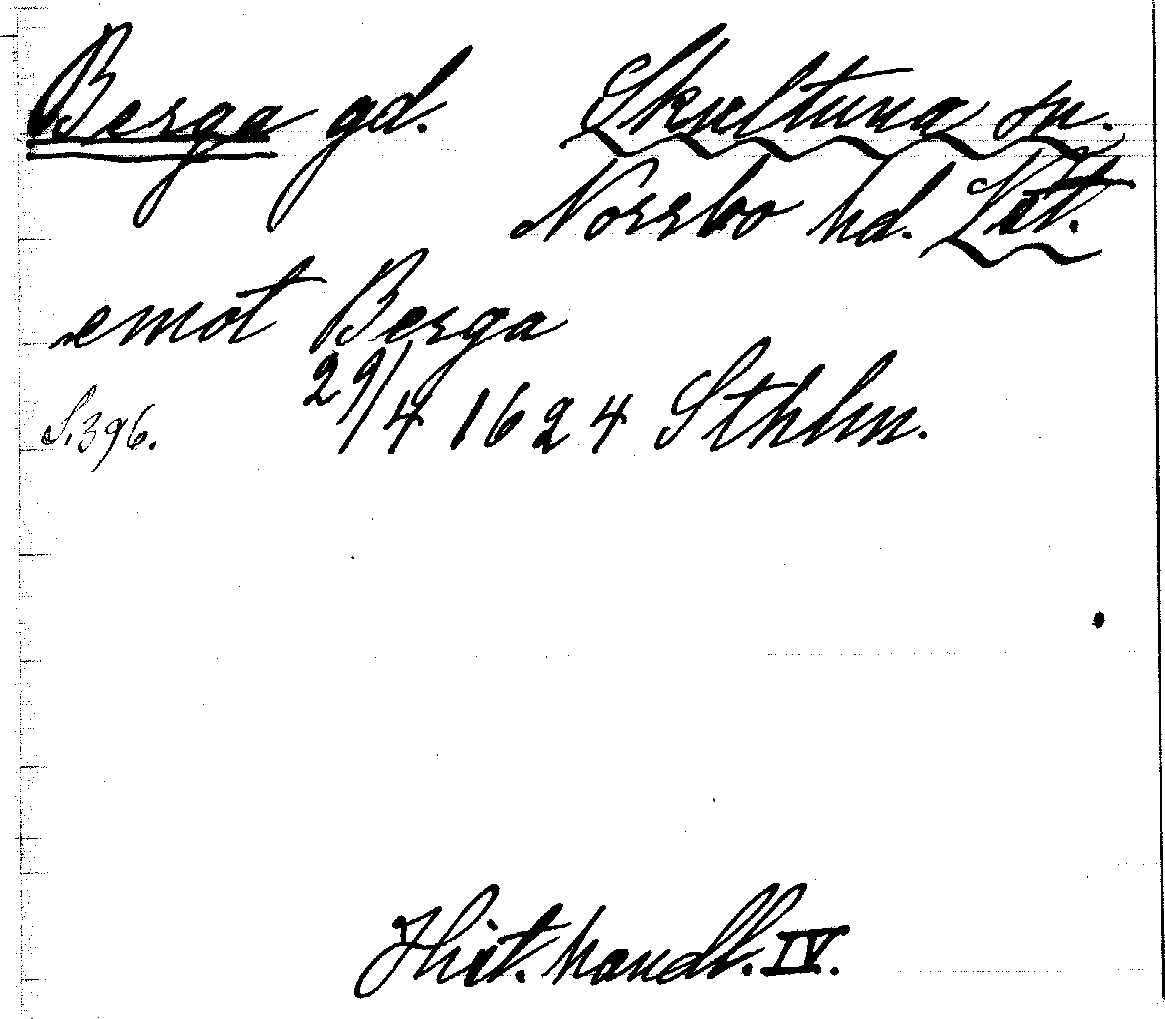 Berga gd. Skultuna sn.
Norrbo hd. Vst.
emot Berga
S. 396. 29/4 1624 Sthlm.
Hist. handl. IV.